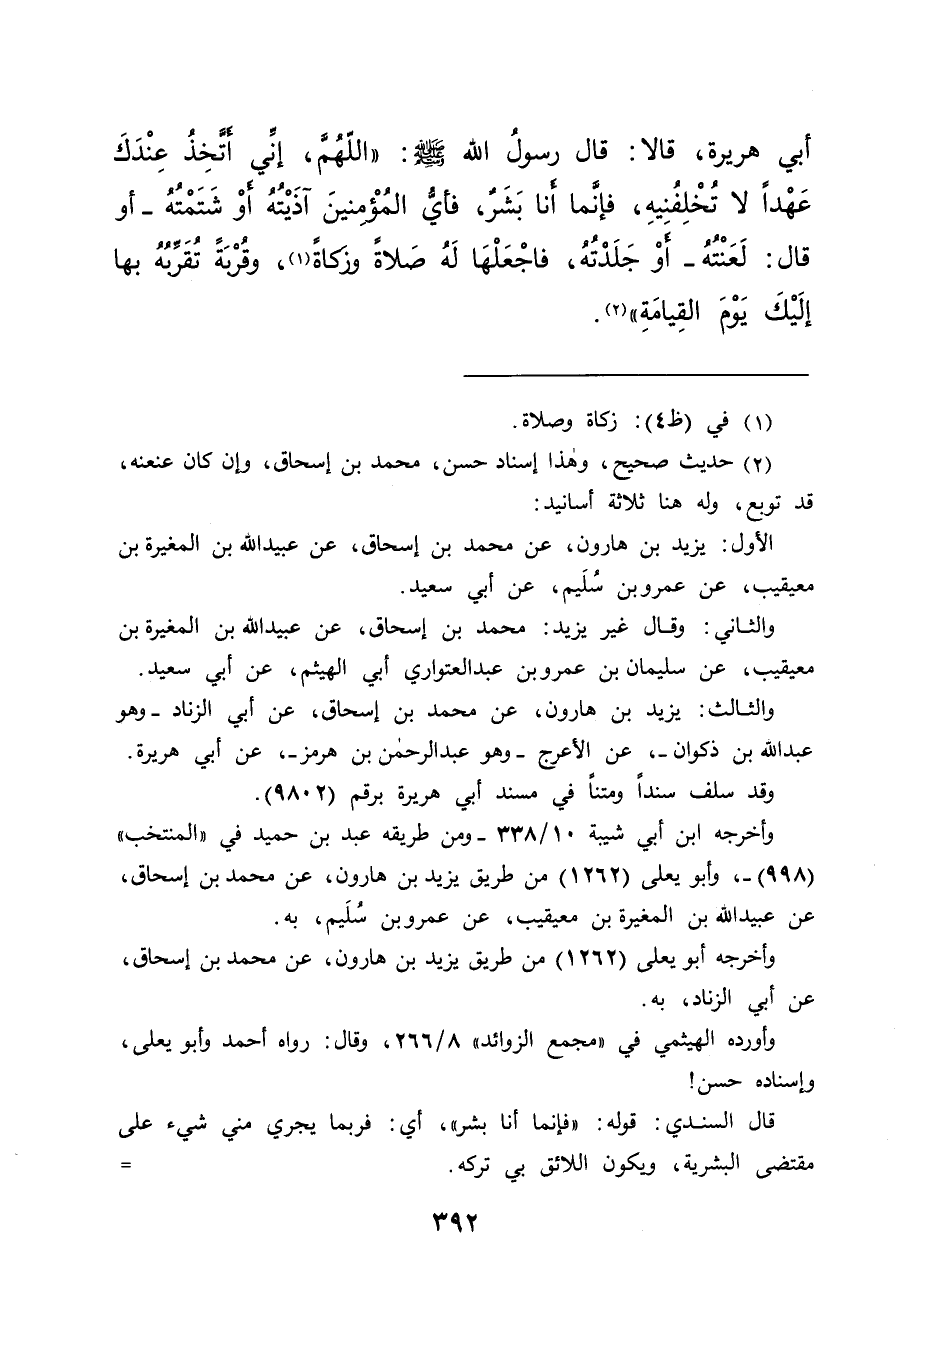 أبي هريرة، قالا: قال رسولُ الله ﷺ: «اللّهُمَّ، إنِّي أَتَّخِذُ عِنْدَكَ
عَهْداً لا تُخْلِفُنِيهِ، فإنَّما أَنا بَشَرٌ، فأيُّ المُؤْمِنينَ آذَيْتُهُ أَوْ شَتَمْتُهُ ـ أو
قال: لَعَنْتُهُ ـ أَوْ جَلَدْتُهُ، فاجْعَلْها لَهُ صَلاةً وزَكاةً(١)، وقُرْبَةً تُقَرِّبُهُ بها
إلَيْكَ يَوْمَ القِيامَةِ»(٢).
(١) في (ظ٤): زكاة وصلاة.
(٢) حديث صحيح، وهٰذا إسناد حسن، محمد بن إسحاق، وإن كان عنعنه،
قد توبع، وله هنا ثلاثة أسانيد:
الأول: يزيد بن هارون، عن محمد بن إسحاق، عن عبيدالله بن المغيرة بن
معيقيب، عن عمرو بن سُلَيم، عن أبي سعيد.
والثاني: وقال غير يزيد: محمد بن إسحاق، عن عبيدالله بن المغيرة بن
معيقيب، عن سليمان بن عمرو بن عبدالعتواري أبي الهيثم، عن أبي سعيد.
والثالث: يزيد بن هارون، عن محمد بن إسحاق، عن أبي الزناد ـ وهو
عبدالله بن ذكوان ـ، عن الأعرج ـ وهو عبدالرحمٰن بن هرمز ـ، عن أبي هريرة.
وقد سلف سنداً ومتناً في مسند أبي هريرة برقم (٩٨٠٢).
وأخرجه ابن أبي شيبة ٣٣٨/١٠ ـ ومن طريقه عبد بن حميد في «المنتخب»
(٩٩٨) ـ، وأبو يعلى (١٢٦٢) من طريق يزيد بن هارون، عن محمد بن إسحاق،
عن عبيدالله بن المغيرة بن معيقيب، عن عمرو بن سُلَيم، به.
وأخرجه أبو يعلى (١٢٦٢) من طريق يزيد بن هارون، عن محمد بن إسحاق،
عن أبي الزناد، به.
وأورده الهيثمي في «مجمع الزوائد» ٢٦٦/٨، وقال: رواه أحمد وأبو يعلى،
وإسناده حسن!
قال السندي: قوله: «فإنما أنا بشر»، أي: فربما يجري مني شيء على
مقتضى البشرية، ويكون اللائق بي تركه. =
٣٩٢